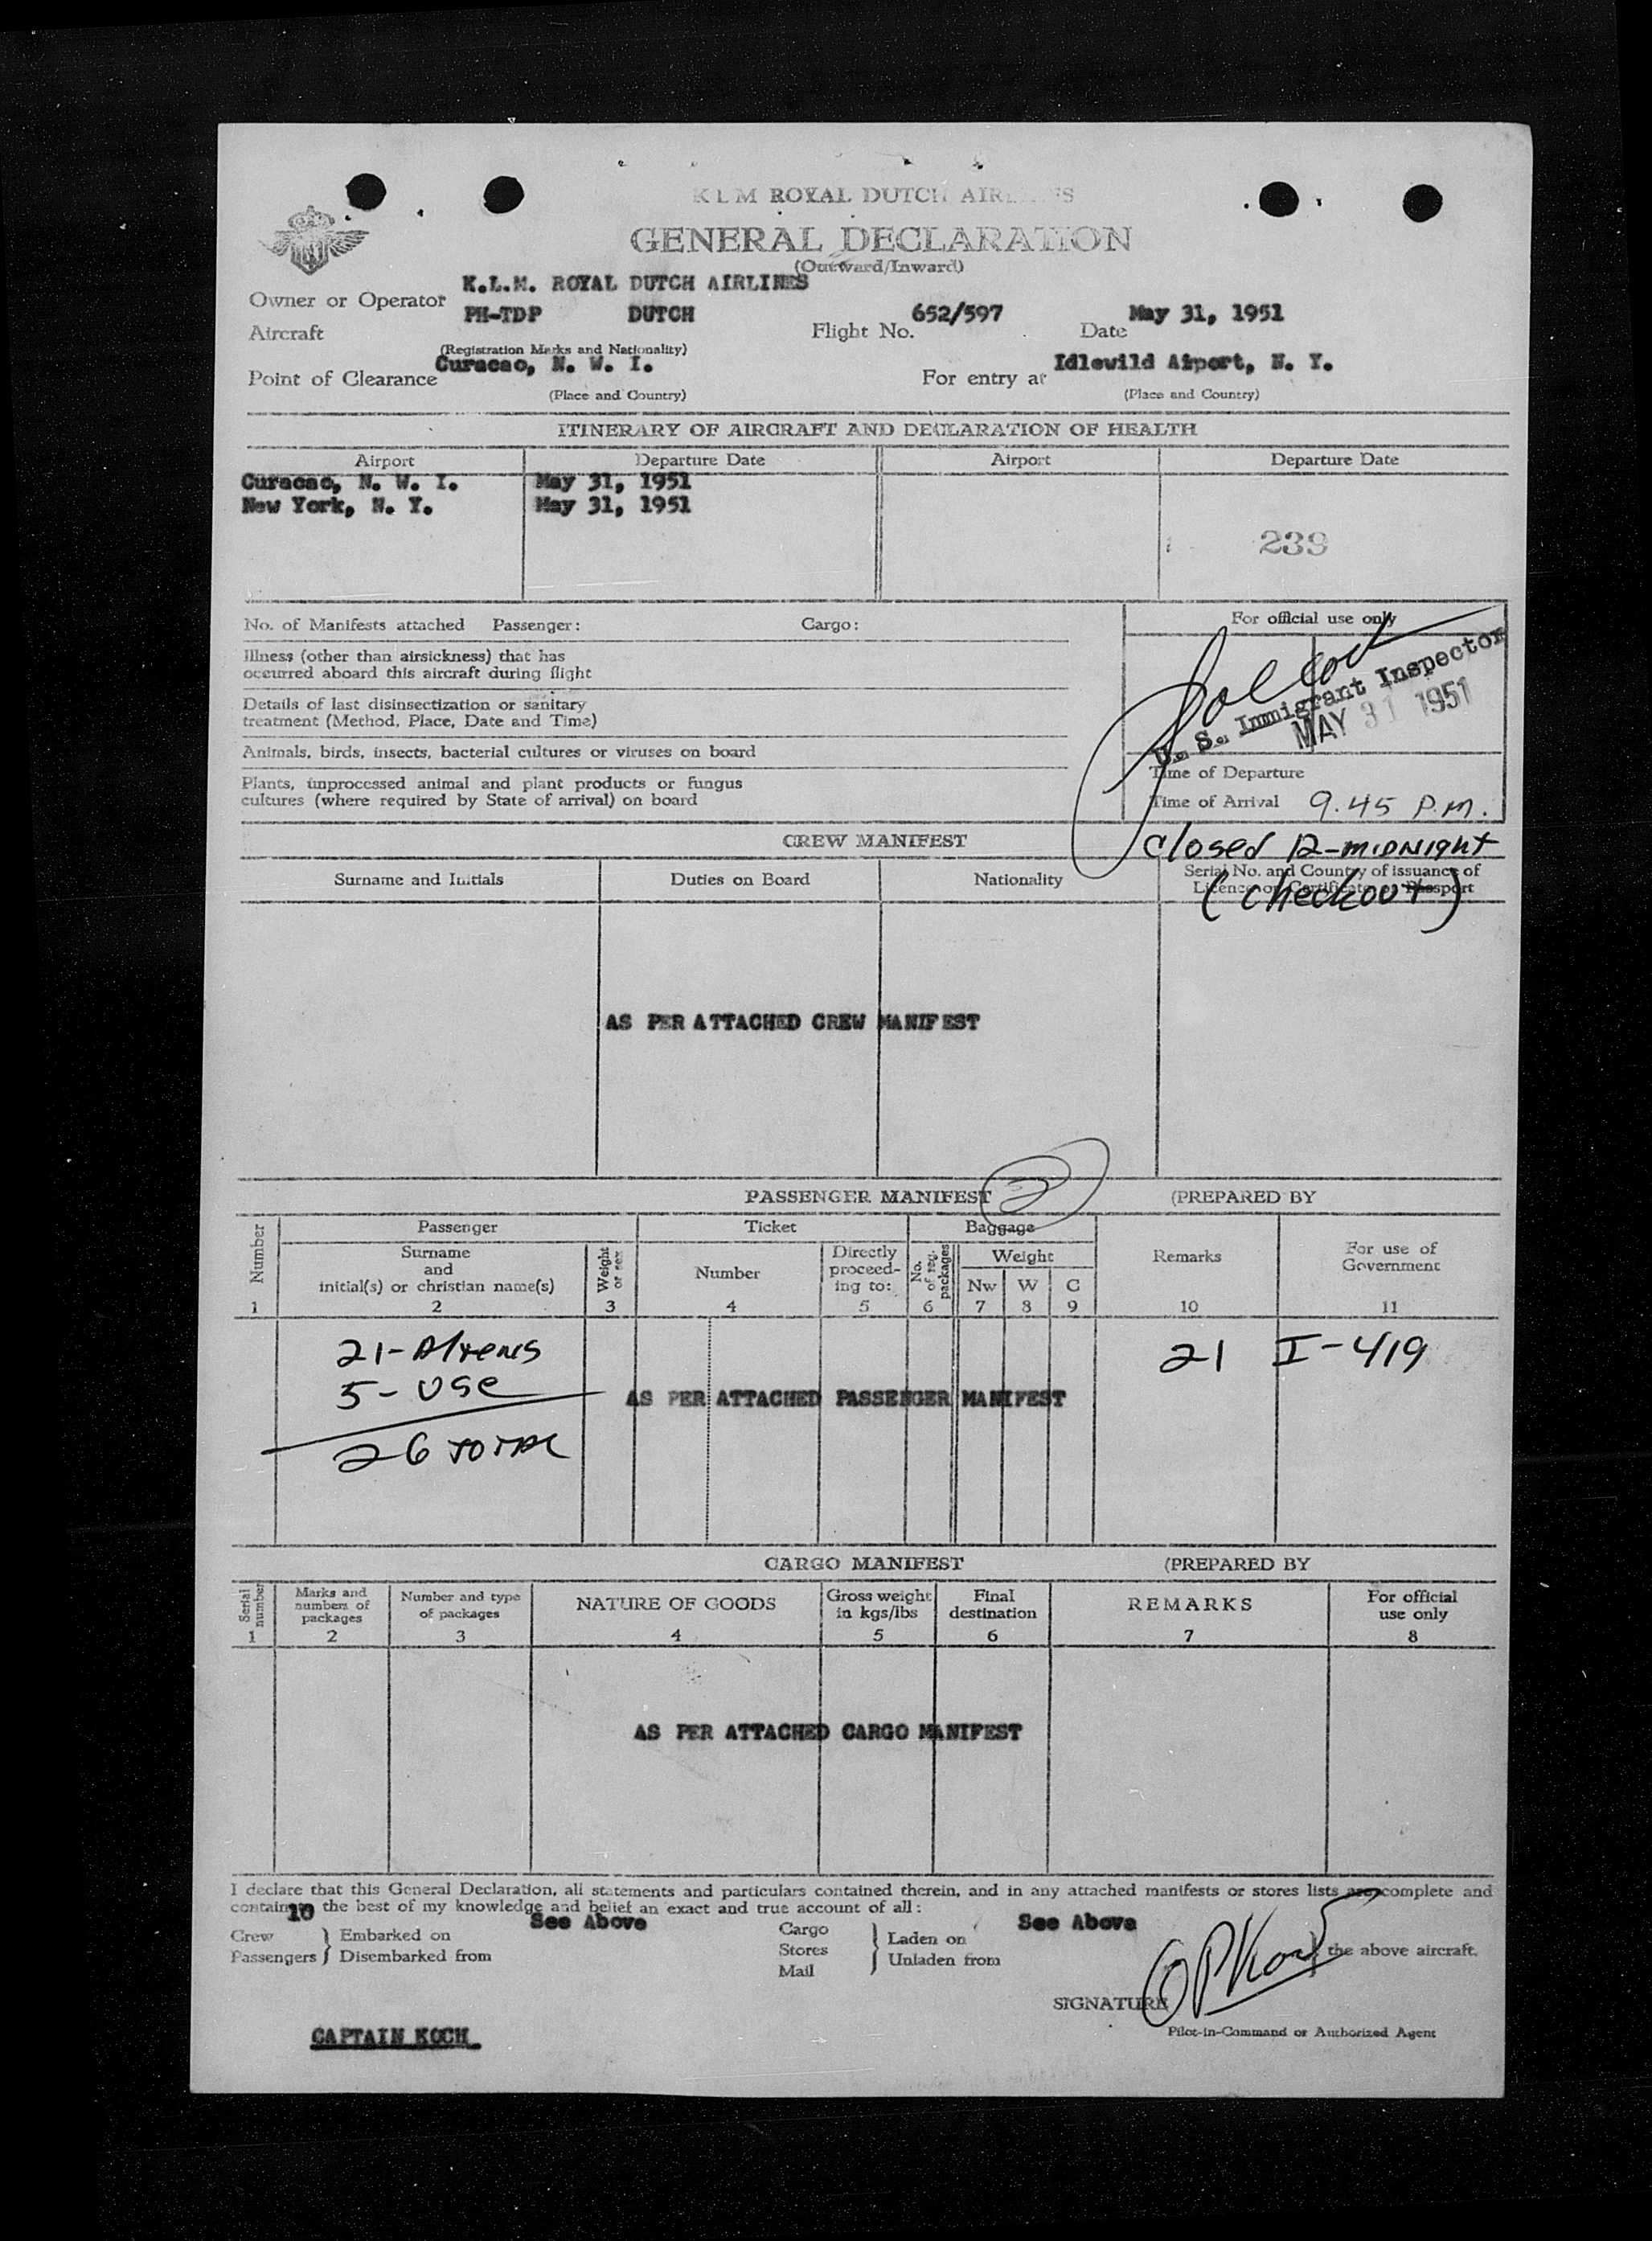 KLM ROYAL DUTCH AIRLINES
GENERAL DECLARATION
(Outward/Inward)
Owner or Operator K.L.M. ROYAL DUTCH AIRLINES
Aircraft PH-TDP DUTCH Flight No. 652/597 Date May 31, 1951
(Registration Marks and Nationality)
Point of Clearance Curacao, N. W. I. For entry at Idlewild Airport, N. Y.
(Place and Country) (Place and Country)
ITINERARY OF AIRCRAFT AND DECLARATION OF HEALTH
Airport Departure Date Airport Departure Date
Curacao, N. W. I. May 31, 1951
New York, N. Y. May 31, 1951
239
No. of Manifests attached Passenger: Cargo: For official use only
Illness (other than airsickness) that has
occurred aboard this aircraft during flight
U. S. Immigrant Inspector
MAY 31 1951
Details of last disinsectization or sanitary
treatment (Method, Place, Date and Time)
Animals, birds, insects, bacterial cultures or viruses on board
Plants, unprocessed animal and plant products or fungus
cultures (where required by State of arrival) on board
Time of Departure
Time of Arrival 9.45 P.M.
CREW MANIFEST
closed 12-MIDNIGHT
(checkout)
Surname and Initials Duties on Board Nationality Serial No. and Country of issuance of
Licence or Certificate or Passport
AS PER ATTACHED CREW MANIFEST
PASSENGER MANIFEST 2 (PREPARED BY
Number Passenger Ticket Baggage Remarks For use of
Government
Surname
and
initial(s) or christian name(s) Weight
or sex Number Directly
proceed-
ing to: No.
of reg.
packages Weight
Nw W C
1 2 3 4 5 6 7 8 9 10 11
21-Aliens 21 I-419
5-USC
AS PER ATTACHED PASSENGER MANIFEST
26 TOTAL
CARGO MANIFEST (PREPARED BY
Serial
number Marks and
numbers of
packages Number and type
of packages NATURE OF GOODS Gross weight
in kgs/lbs Final
destination REMARKS For official
use only
1 2 3 4 5 6 7 8
AS PER ATTACHED CARGO MANIFEST
I declare that this General Declaration, all statements and particulars contained therein, and in any attached manifests or stores lists are complete and
contain to the best of my knowledge and belief an exact and true account of all:
Crew
Passengers } Embarked on
Disembarked from See Above
Cargo
Stores
Mail } Laden on
Unladen from See Above } the above aircraft.
SIGNATURE OPKoch
Pilot-in-Command or Authorized Agent
CAPTAIN KOCH